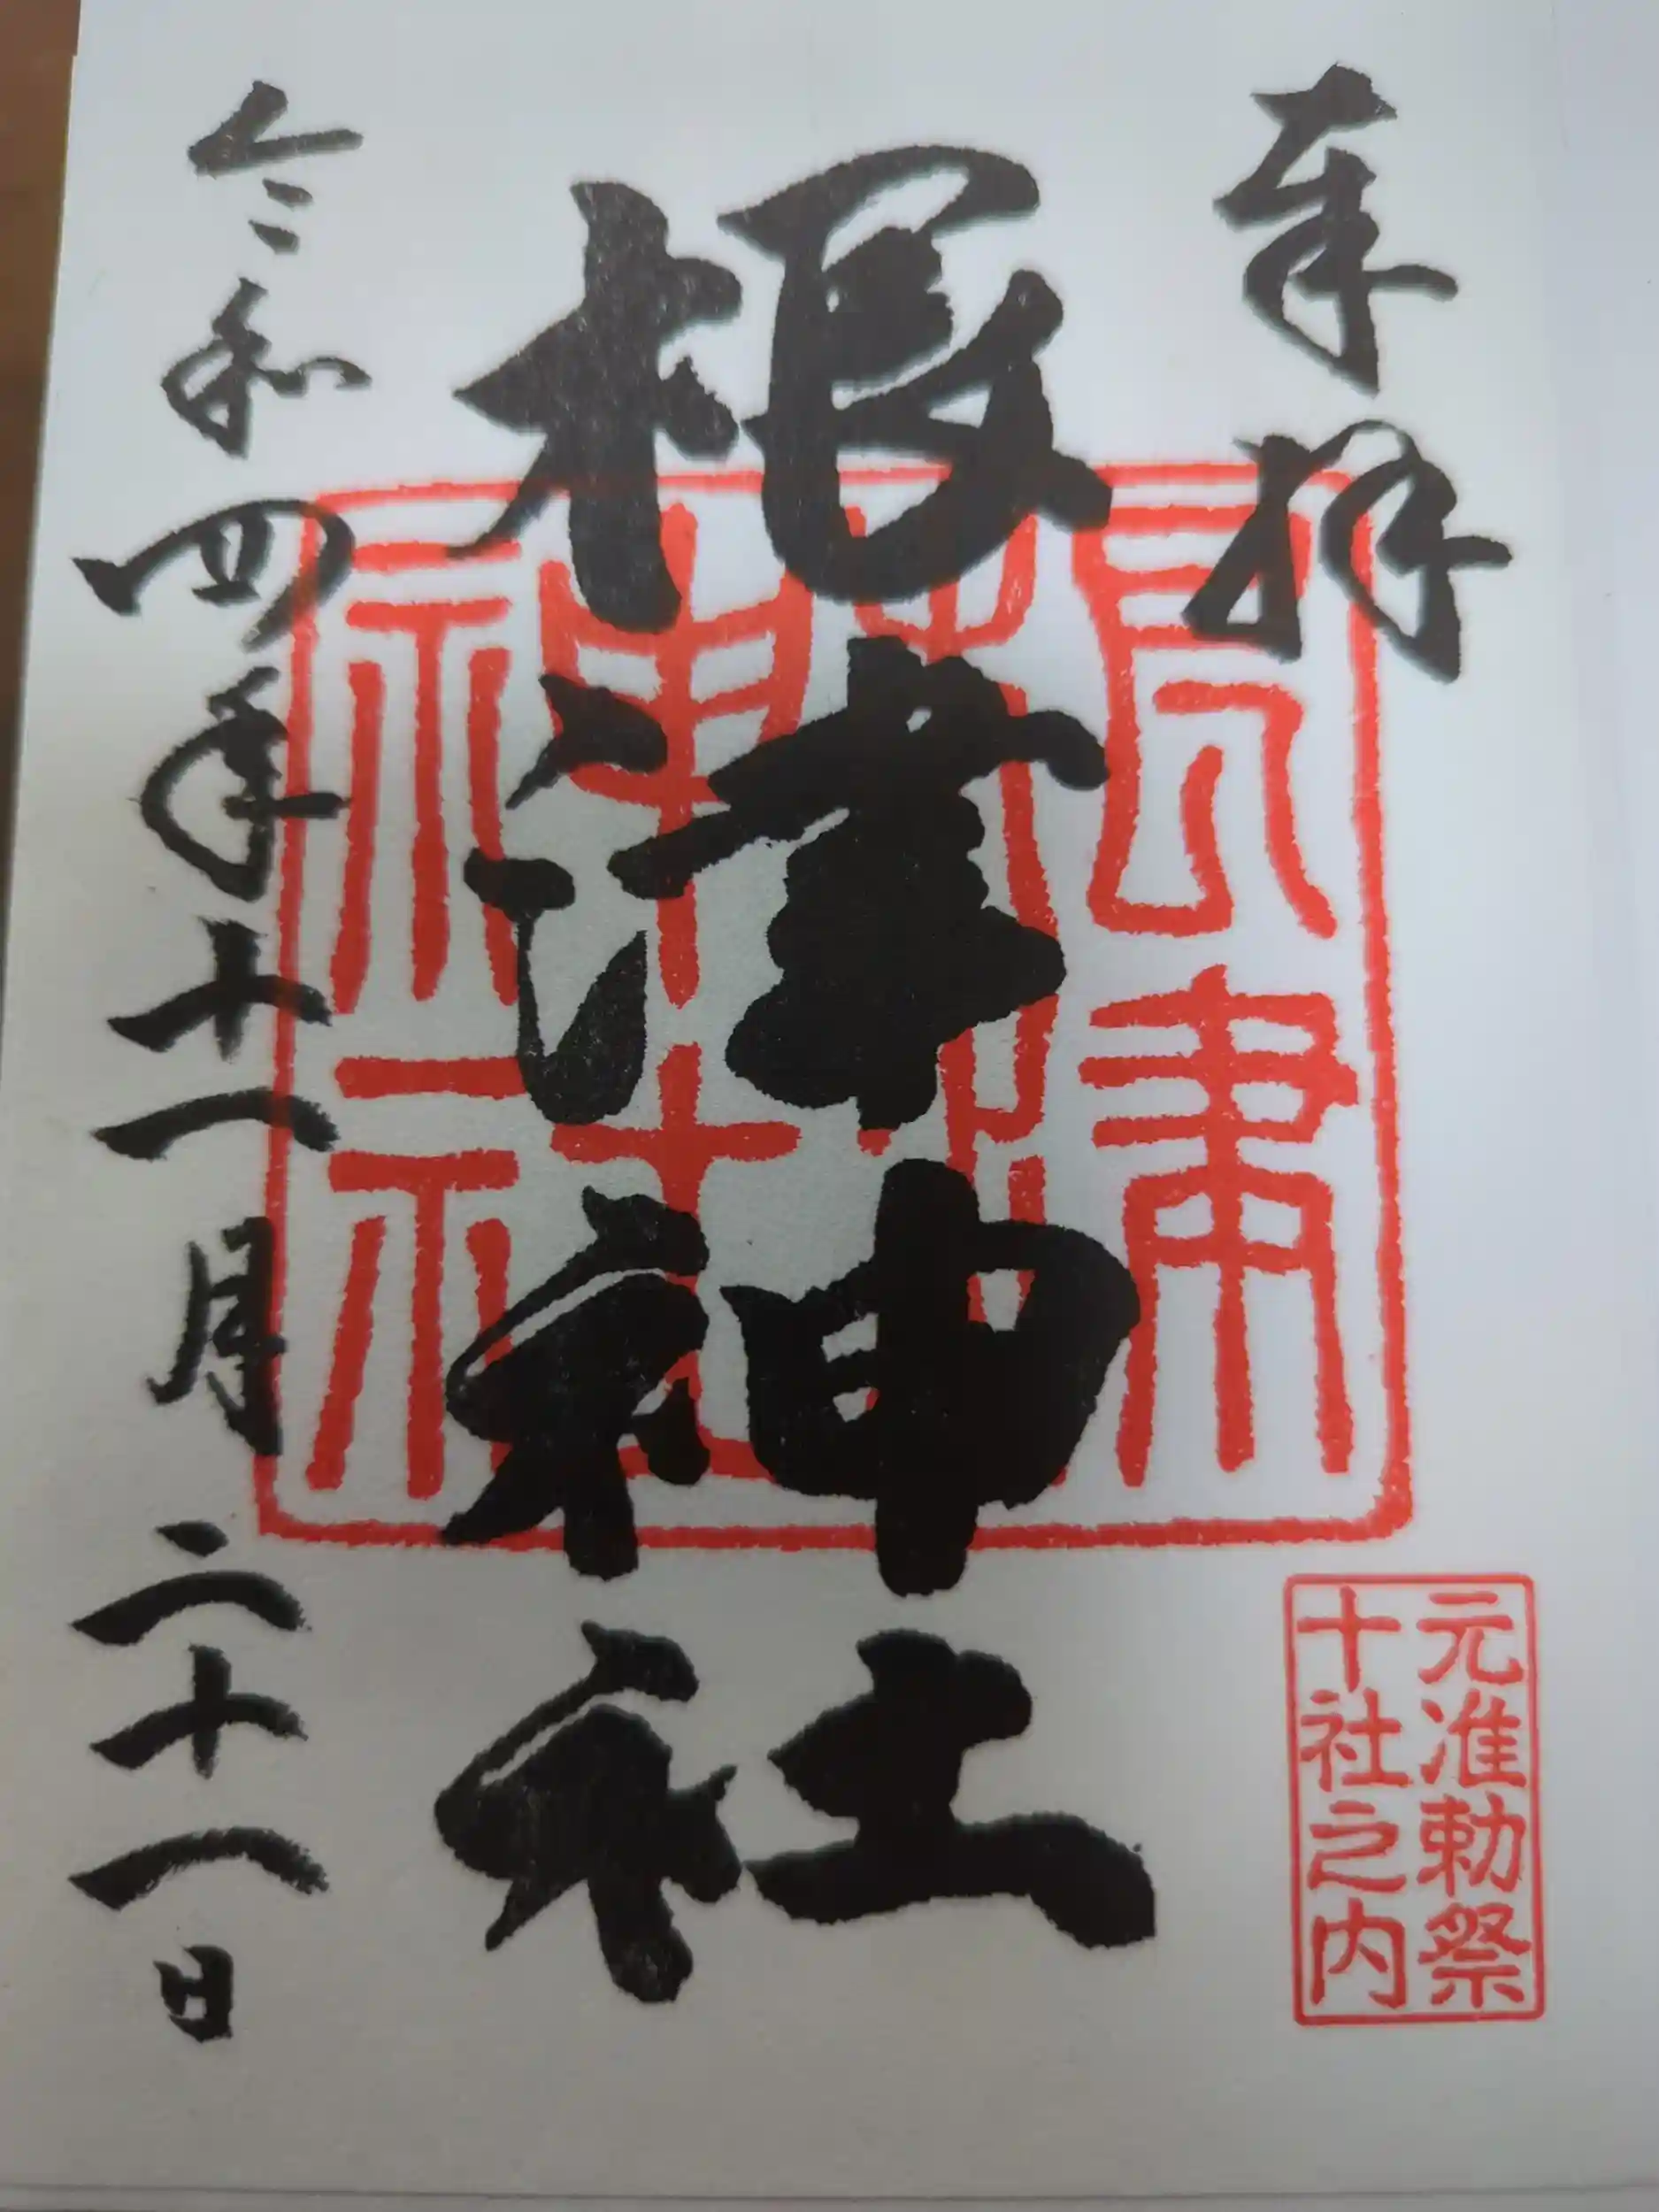 奉拝
根津神社
令和四年十一月二十一日
根津
神社
元准勅祭
十社之内